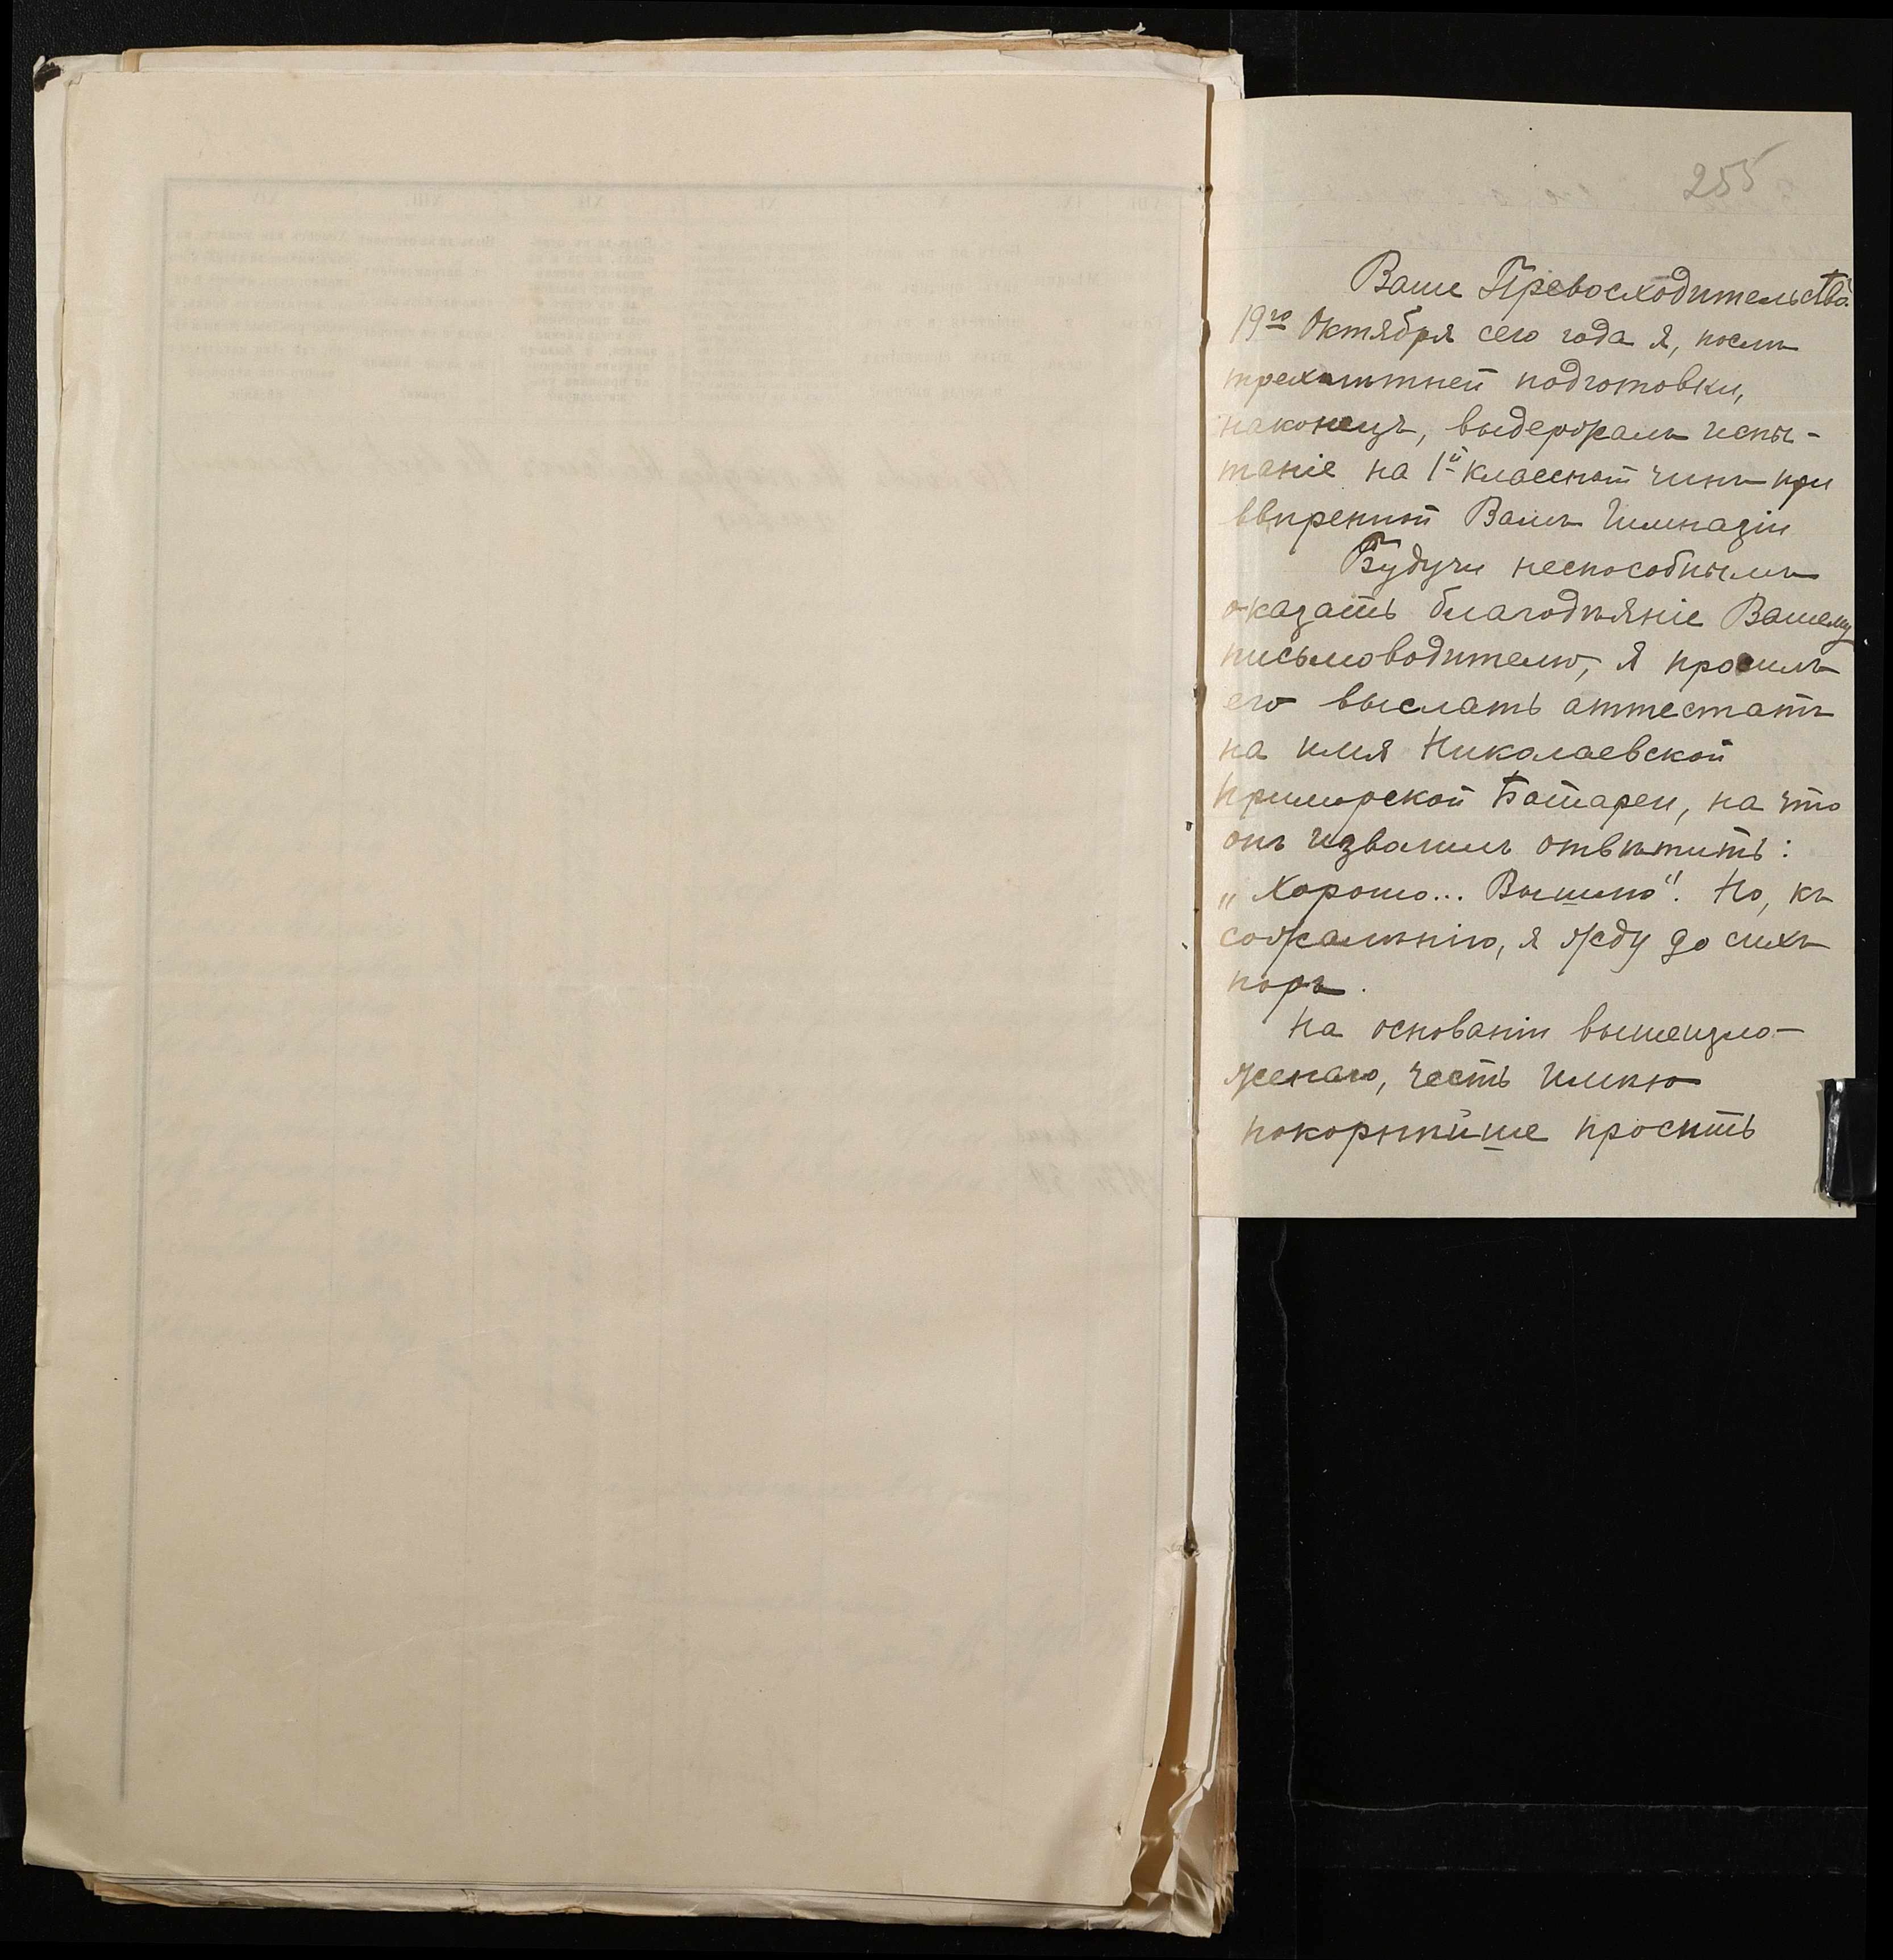 255
Ваше Превосходительство
19го Октября сего года я, послѣ
трехлѣтней подготовки,
наконецъ, выдержалъ испы-
таніе на 1й классный чинъ при
ввѣренной Вамъ Гимназіи
Будучи неспособнымъ
оказать благодѣяніе Вашему
письмоводителю, я просилъ
его выслать аттестатъ
на имя Николаевской
Приморской Батареи, на что
онъ изволилъ отвѣтить:
„Хорошо... Вышлю". Но, къ
сожалѣнію, я жду до сихъ
поръ.
На основаніи вышеизло-
женаго, честь имѣю
покорнѣйше просить